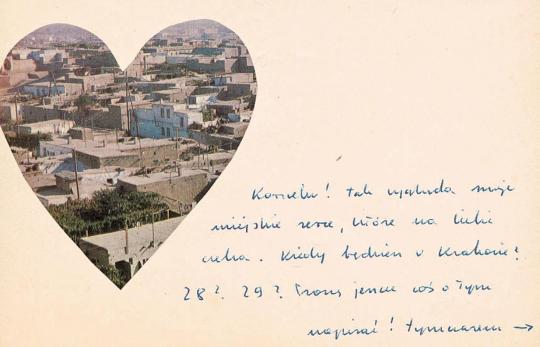 Kornelu! tak wygląda moje
miejskie serce, które na Ciebie
czeka. Kiedy będziesz w Krakowie?
28? 29? Proszę jeszcze coś o tym
napisać! Tymczasem →